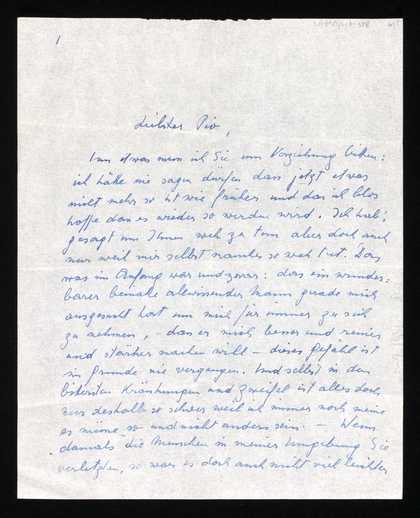 1
Liebster Piv,
Um etwas muss ich Sie um Verzeihung bitten:
ich hätte nie sagen dürfen dass jetzt etwas
nicht mehr so ist wie früher und das ich blos
hoffe dass es wieder so werden wird. Ich hab's
gesagt um Ihnen weh zu tun aber doch auch
nur weil mir selbst manches so weh tut. Das
was im Anfang war und zwar: dass ein wunder-
barer beinahe allwissender Mann gerade mich
ausgesucht hat um mich für immer zu sich
zu nehmen, – dass er mich besser und reiner
und stärker machen will – dieses Gefühl ist
im Grunde nie vergangen. Und selbst in den
bösesten Kränkungen und Zweifel ist alles doch
nur deshalb so schwer weil ich immer noch meine
es müsse so und nicht anders sein. – Wenn
damals die Menschen in meiner Umgebung Sie
verletzten, so war es doch auch nicht viel leichter